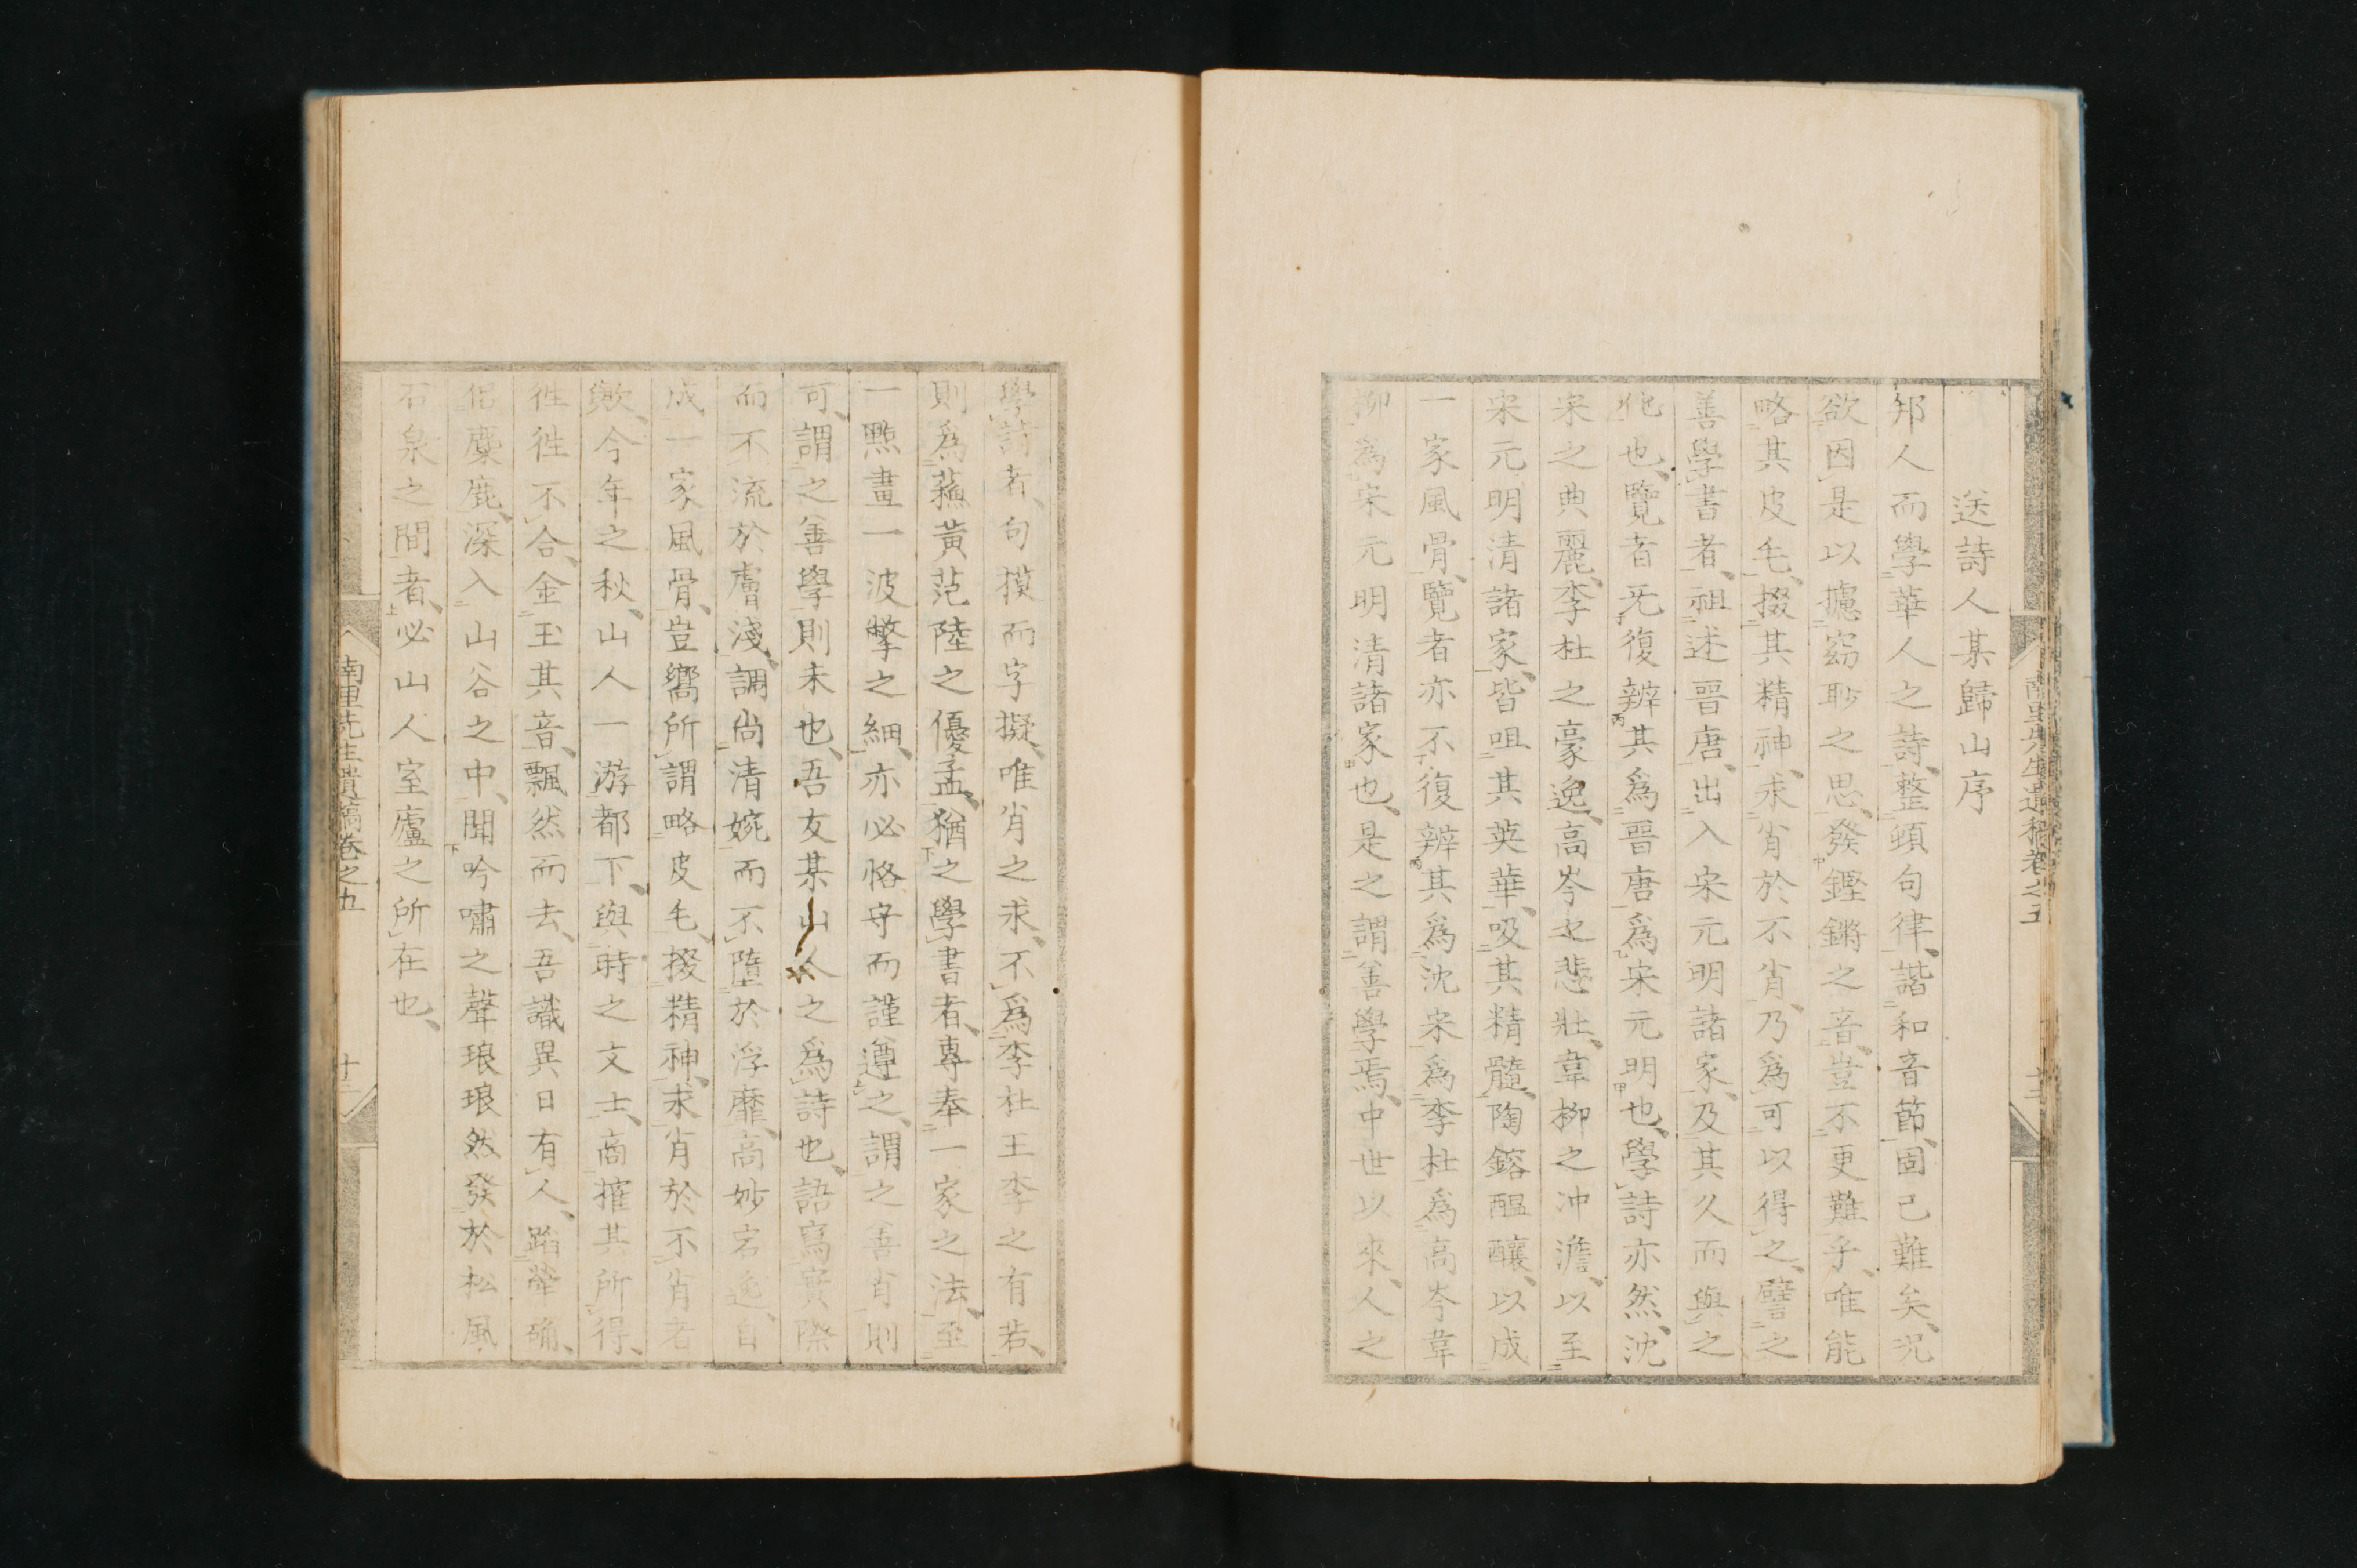 送詩人某歸山序
邦人而學華人之詩、整頓句律、諧和音節、固已難矣、况
欲因是以攄窈眇之思、發鏗鏘之音、豈不更難乎、唯能
略其皮毛、掇其精神、求肖於不肖、乃爲可以得之、譬之
善學書者、祖述晋唐、出入宋元明諸家、及其久而與之
化也、覽者旡復辨其爲晋唐爲宋元明也、學詩亦然、沈
宋之典麗、李杜之豪逸、高岑之悲壯、韋柳之冲澹、以至
宋元明清諸家、皆咀其英華、吸其精髓、陶鎔醞釀、以成
一家風骨、覽者亦不復辨其爲沈宋爲李杜爲高岑韋
柳爲宋元明清諸家也、是之謂善學焉、中世以來、人之
學詩者、句摸而字擬、唯肖之求、不爲李杜王李之有若、
則爲蘓黃范陸之優孟、猶之學書者、專奉一家之法、至
一點畫一波撆之細、亦必恪守而謹遵之、謂之善肖則
可、謂之善學則未也、吾友某山人之爲詩也、語寫實際
而不流於膚淺、調尚清婉而不墮於浮靡、高妙宕逸、自
成一家風骨、豈嚮所謂略皮毛、掇精神、求肖於不肖者
歟、今年之秋、山人一游都下、與時之文士、商搉其所得、
徃徃不合、金玉其音、飄然而去、吾識異日有人、蹈犖确、
侣麋鹿、深入山谷之中、聞吟嘯之聲琅琅然發於松風
石泉之間者、必山人室廬之所在也、
南里先生遺稿卷之五
十二